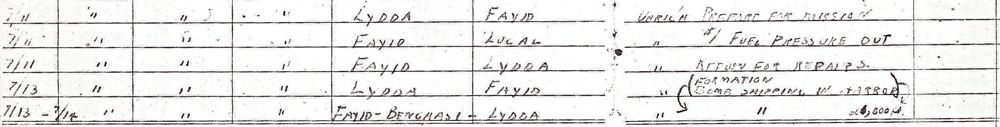 7/11 " " " LYDDA FAYID UHRICH PREPARE FOR MISSION
7/11 " " " FAYID LOCAL " #1 FUEL PRESSURE OUT
7/11 " " " FAYID LYDDA " RETURN FOR REPAIRS
7/13 " " " LYDDA FAYID " (FORMATION
BOMB SHIPPING IN HARBOR)
7/13 - 7/14 " " " FAYID-BENGHASI - LYDDA " "